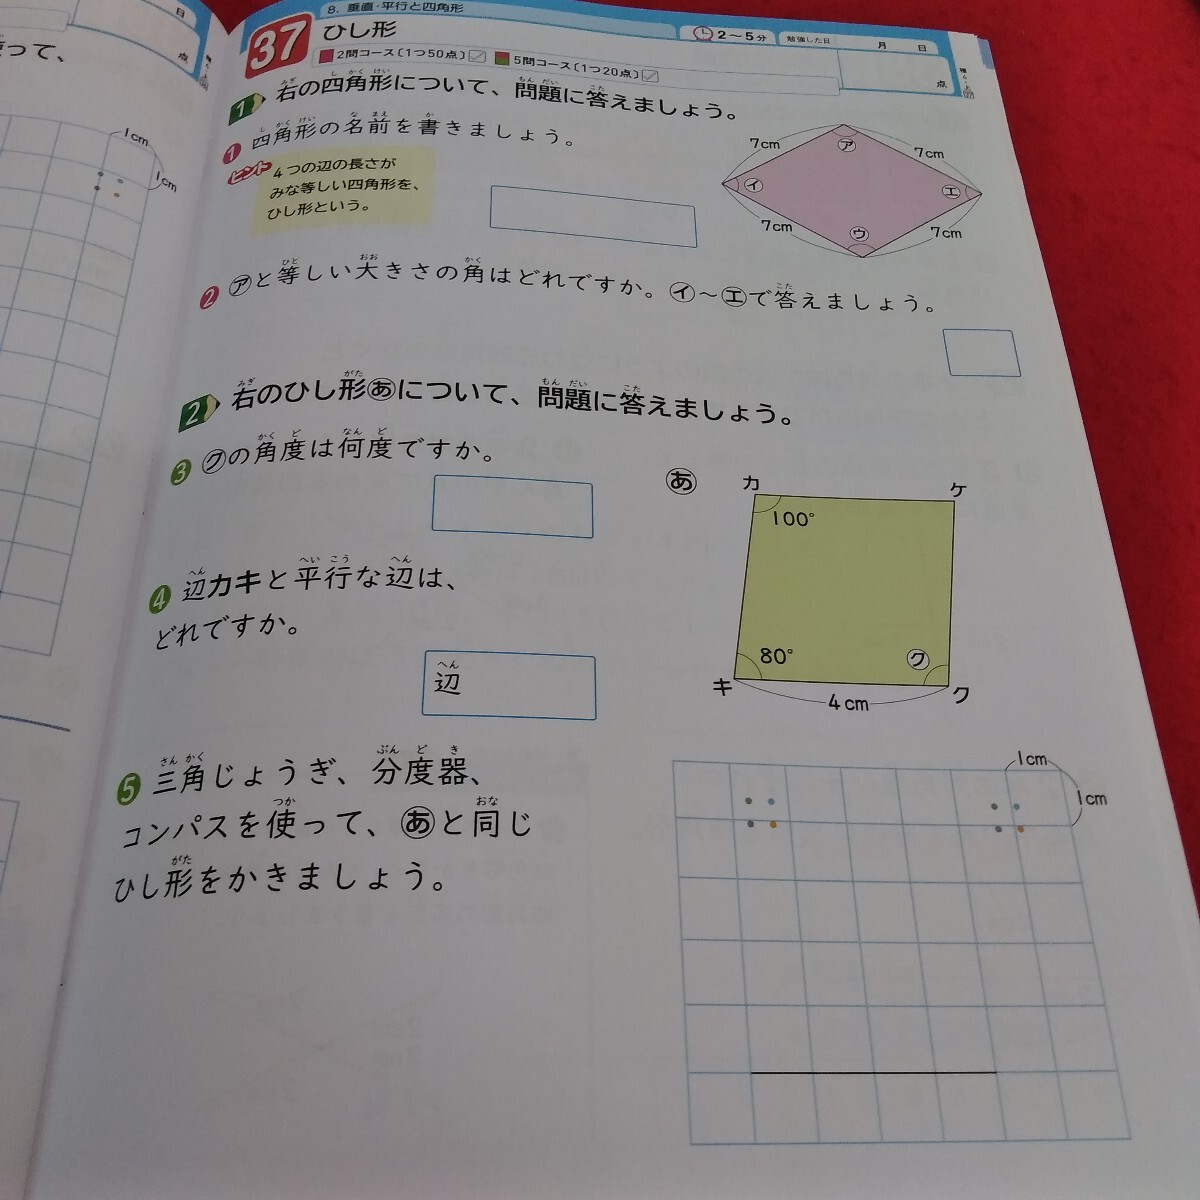 使って、
日
点
1cm
1cm
8. 垂直・平行と四角形
37 ひし形
2〜5分
勉強した日
月 日
点
2問コース(1つ50点)
5問コース(1つ20点)
1 右の四角形について、問題に答えましょう。
❶ 四角形の名前を書きましょう。
ヒント
4つの辺の長さが
みな等しい四角形を、
ひし形という。
7cm
7cm
7cm
7cm
㋐
㋑
㋒
㋓
❷ ㋐と等しい大きさの角はどれですか。㋑〜㋓で答えましょう。
2 右のひし形㋐について、問題に答えましょう。
❸ ㋗の角度は何度ですか。
❹ 辺カキと平行な辺は、
どれですか。
辺
あ
カ
ケ
100°
80°
ク
キ
ク
4cm
❺ 三角じょうぎ、分度器、
コンパスを使って、あと同じ
ひし形をかきましょう。
1cm
1cm